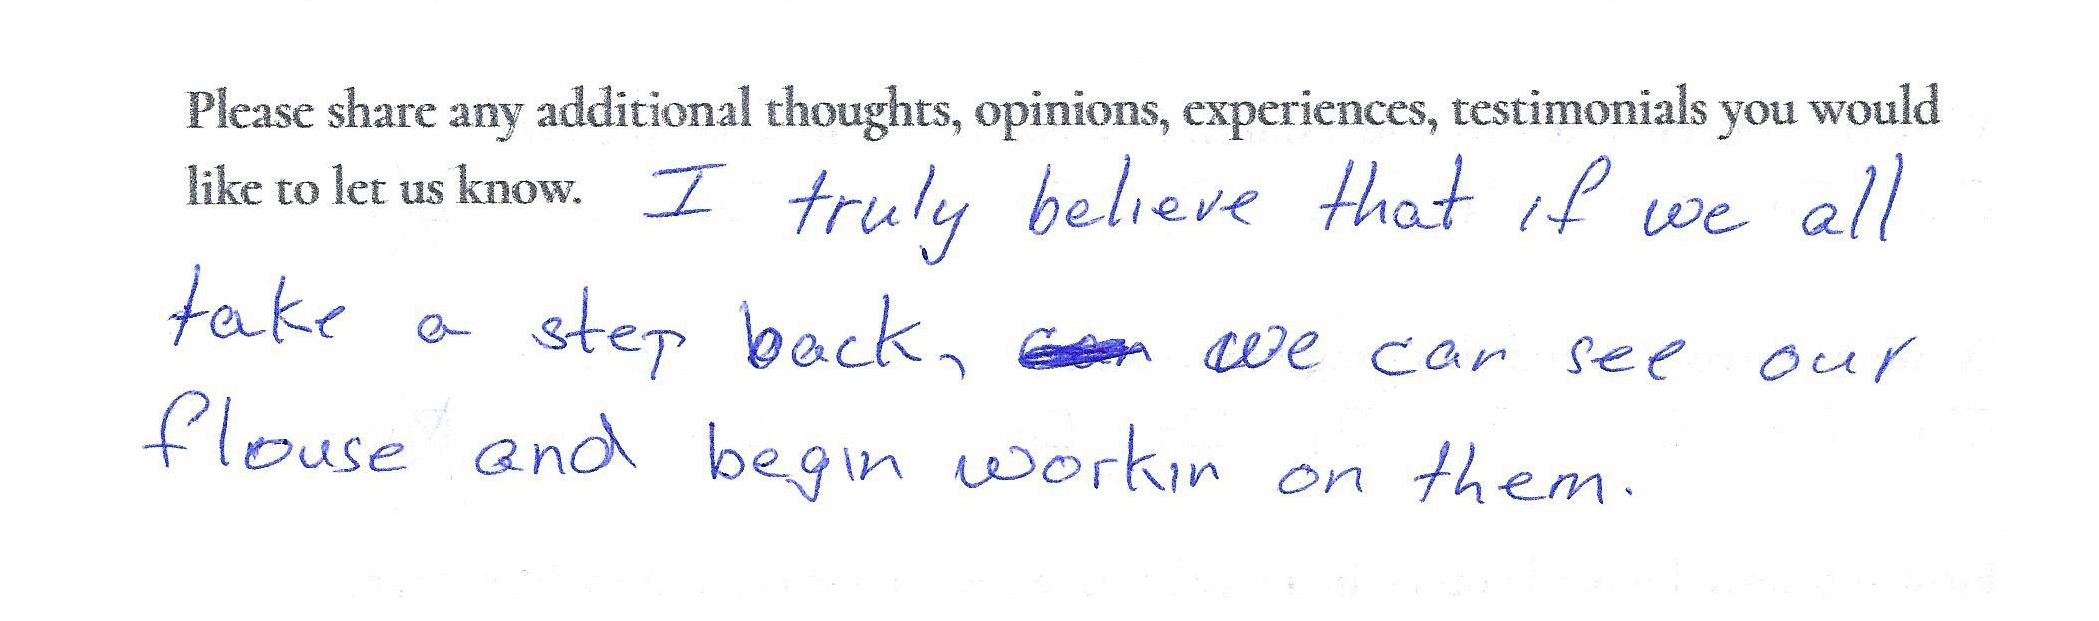 Please share any additional thoughts, opinions, experiences, testimonials you would
like to let us know. I truly believe that if we all
take a step back, we can see our
flouse and begin workin on them.